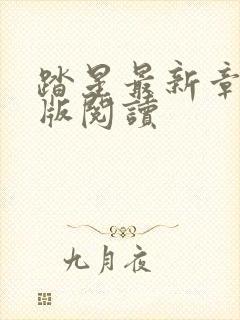 踏星最新章
版閱讀
九月夜